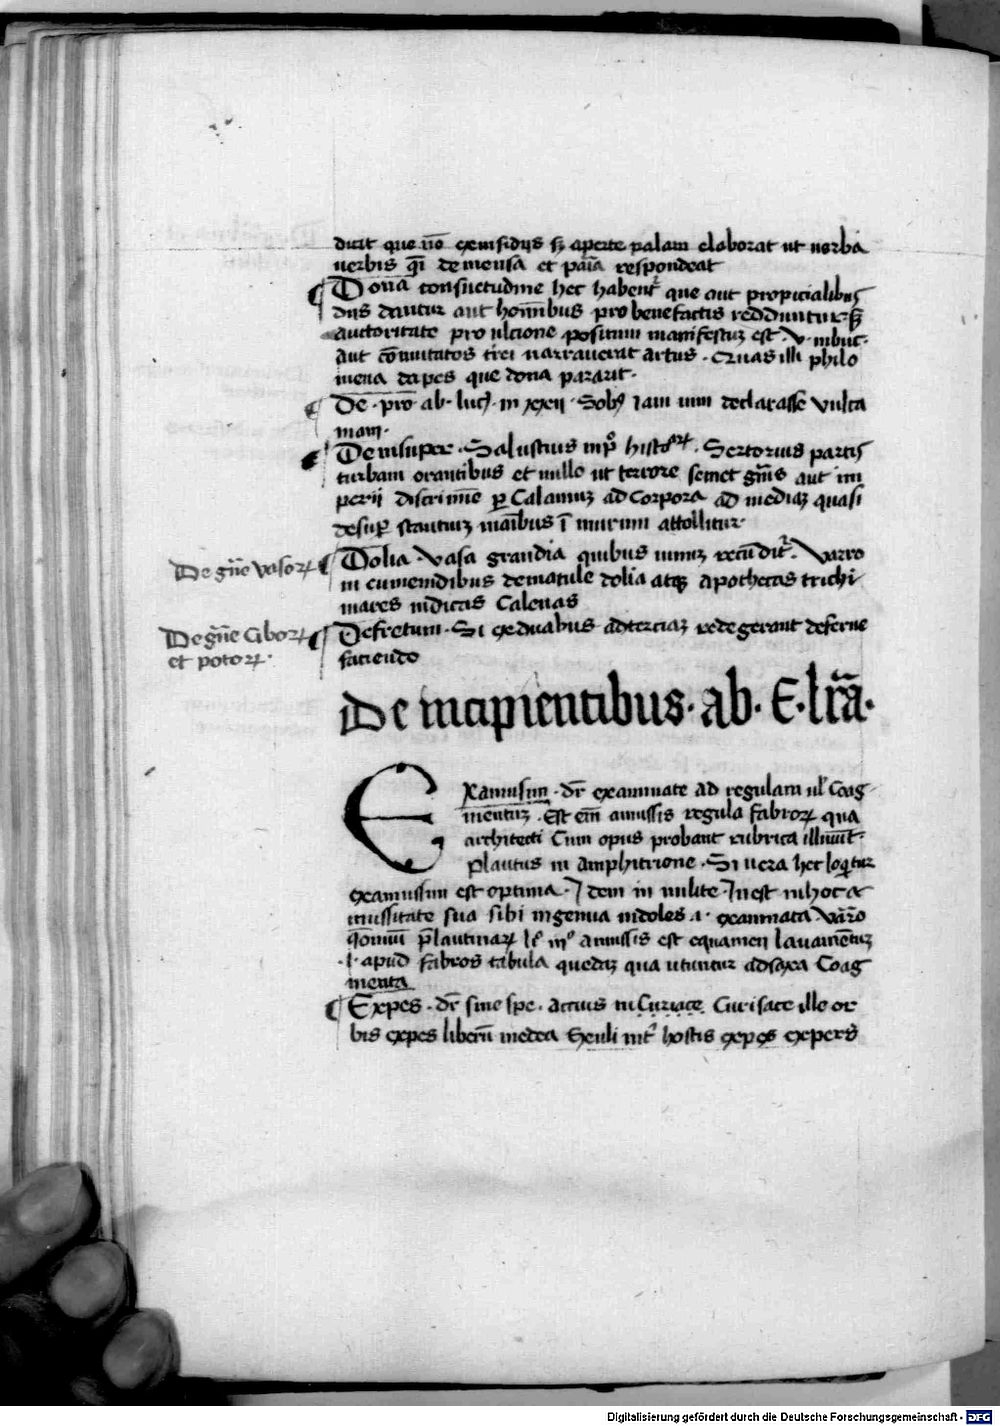 dicit que nō ex insidiis sꝫ aperte palam elaborat ut uerba
uerbis q̄i demensa et paīa respondeāt
¶ Dona consuetudine hec habent᷑ que aut propicialibus
diis dantur aut hominibus pro benefactis redduntur sꝫ
auctoritate pro ulcione positum manifestuꝫ est .V. in buc.
Aut cōmutatos terei narrauerat artus . Quas illi philo
mena dapes que dona pararit.
¶ De . pro . ab . luc̄ꝫ . in xxii . Sobꝫ iam uini declarasse Vulta
mam.
¶ Demsuper . Salustius in p̊ histoarꝝ . Sertorius partis
turbam orantibus et nullo ut terrore semet gn̄is aut im
perii discrimīe ꝑ Calamuꝫ ad Corpora ad mediaꝫ quasi
desuꝑ stantiuꝫ manibus ī murum attollitur
De gn̄e vasoꝝ ¶ Dolia . Vasa grandia quibus uinuꝫ recūdit᷑ . Varro
in eumenidibus dematule dolia atqꝫ apothecas trichi
mares indicas Calenas
De gn̄e Ciboꝝ ¶ Defretum . Si ex duabus ad terciaꝫ redegerant deferue
et potoꝝ . faciendo
De incipientibus . ab . E . lr̄a .
Examusim . dr̄ examinate ad regulam ul̄ Coag
mentuꝫ . Est em̄ amussis regula fabroꝝ qua
architecti Cum opus probant rubrica illinūt .
Plautus in Amphitrione . Si uera hec loquitur
examussim est optima . Idem in milite . Inest in hoc a
mussitate sua sibi ingenua indoles .i. examinata Varro
q̄onuū plautinaꝝ l̄ in̊ amussis est equamen lauamētuꝫ
.l. apud fabros tabula quedaꝫ qua utuntur ad saxa Coag
menta
¶ Expes . dr̄ sine spe . accius in Curiace Curisace ille or
bis expes liberū medea Exuli int᷑ hostis expes expers
Digitalisierung gefördert durch die Deutsche Forschungsgemeinschaft - DFG